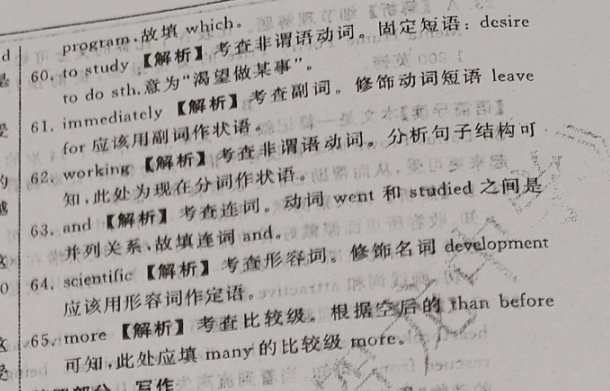 program,故填 which。
60. to study 【解析】考查非谓语动词。固定短语：desire
to do sth.意为“渴望做某事”。
61. immediately 【解析】考查副词。修饰动词短语 leave
for 应该用副词作状语。
62. working 【解析】考查非谓语动词。分析句子结构可
知,此处为现在分词作状语。
63. and 【解析】考查连词。动词 went 和 studied 之间是
并列关系,故填连词 and。
64. scientific 【解析】考查形容词。修饰名词 development
应该用形容词作定语。
65. more 【解析】考查比较级。根据空后的 than before
可知,此处应填 many 的比较级 more。
写作